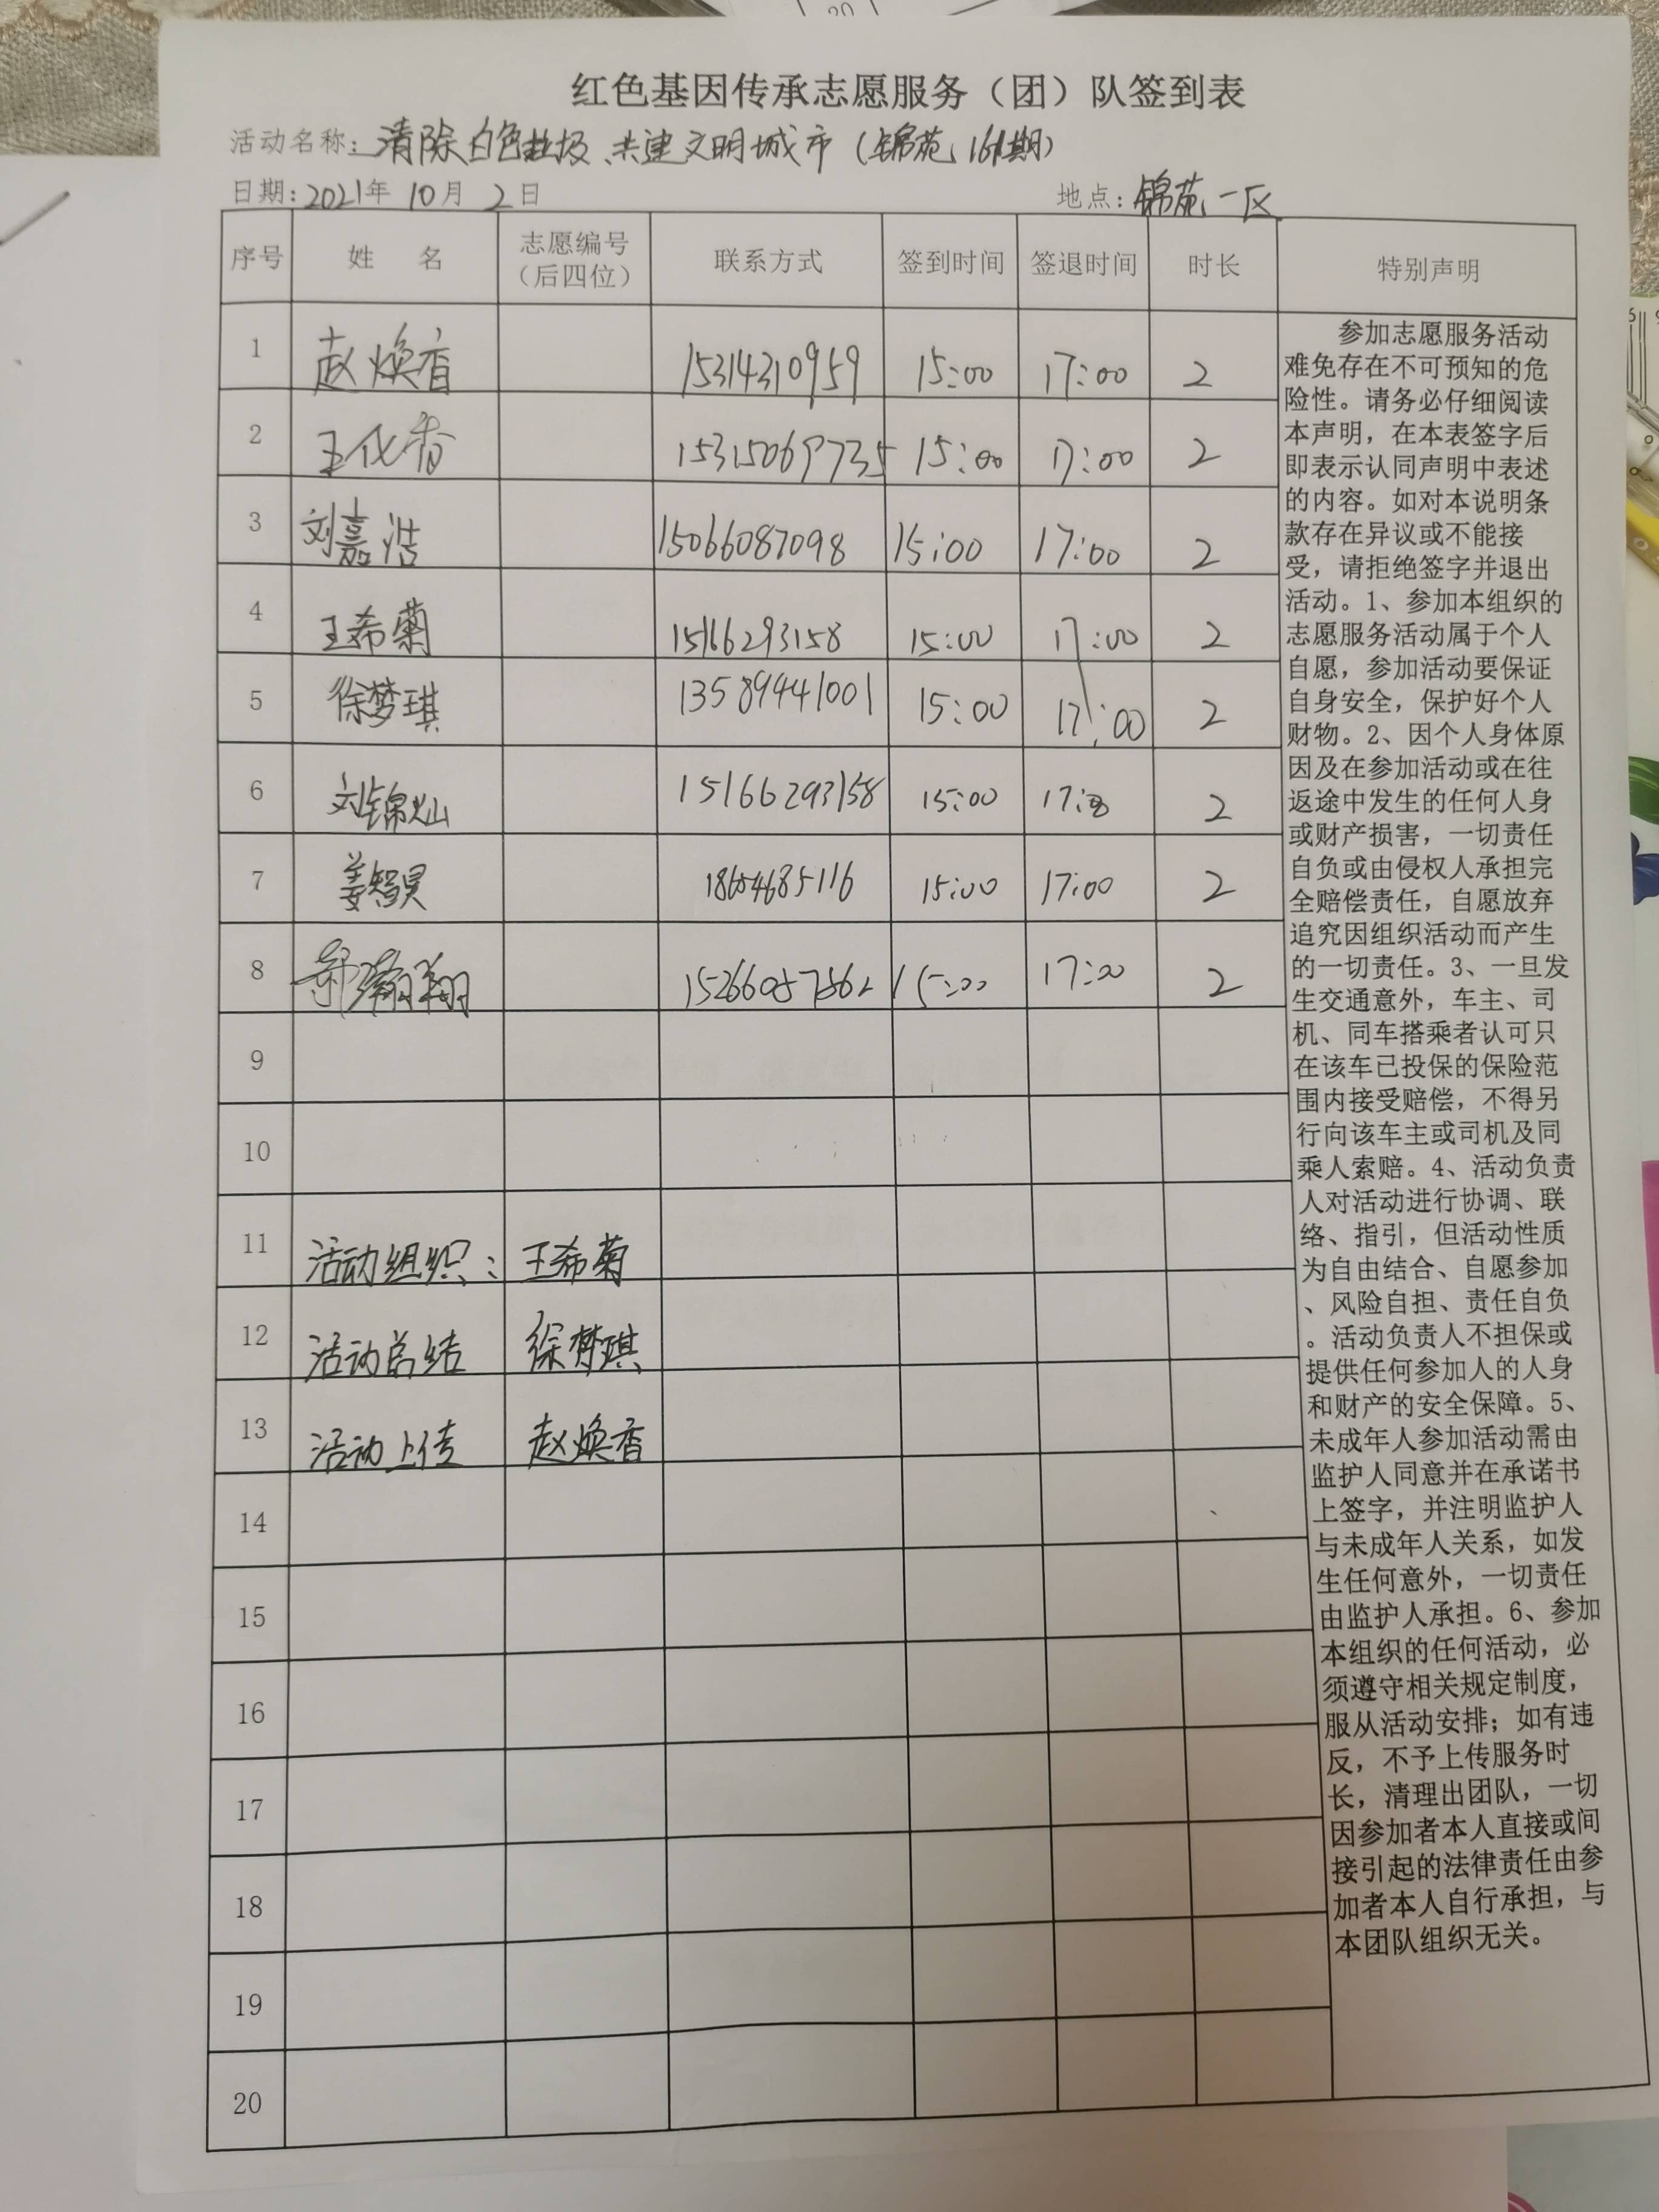 红色基因传承志愿服务（团）队签到表
活动名称：清除白色垃圾、共建文明城市（锦苑，161期）
日期：2021年 10月 2日 地点：锦苑一区
序号 姓 名 志愿编号（后四位） 联系方式 签到时间 签退时间 时长 特别声明
1 赵焕香 15314310959 15:00 17:00 2
2 王化香 15315069735 15:00 17:00 2
3 刘嘉浩 15066087098 15:00 17:00 2
4 王希菊 15166293158 15:00 17:00 2
5 徐梦琪 13589441001 15:00 17:00 2
6 刘锦灿 15166293158 15:00 17:00 2
7 姜智昊 18654685116 15:00 17:00 2
8 瀚翔 15:00 17:00 2
9
10
11 活动组织： 王希菊
12 活动总结 徐梦琪
13 活动上传 赵焕香
14
15
16
17
18
19
20
参加志愿服务活动
难免存在不可预知的危
险性。请务必仔细阅读
本声明，在本表签字后
即表示认同声明中表述
的内容。如对本说明条
款存在异议或不能接
受，请拒绝签字并退出
活动。1、参加本组织的
志愿服务活动属于个人
自愿，参加活动要保证
自身安全，保护好个人
财物。2、因个人身体原
因及在参加活动或在往
返途中发生的任何人身
或财产损害，一切责任
自负或由侵权人承担完
全赔偿责任，自愿放弃
追究因组织活动而产生
的一切责任。3、一旦发
生交通意外，车主、司
机、同车搭乘者认可只
在该车已投保的保险范
围内接受赔偿，不得另
行向该车主或司机及同
乘人索赔。4、活动负责
人对活动进行协调、联
络、指引，但活动性质
为自由结合、自愿参加
、风险自担、责任自负
。活动负责人不担保或
提供任何参加人的人身
和财产的安全保障。5、
未成年人参加活动需由
监护人同意并在承诺书
上签字，并注明监护人
与未成年人关系，如发
生任何意外，一切责任
由监护人承担。6、参加
本组织的任何活动，必
须遵守相关规定制度，
服从活动安排；如有违
反，不予上传服务时
长，清理出团队，一切
因参加者本人直接或间
接引起的法律责任由参
加者本人自行承担，与
本团队组织无关。